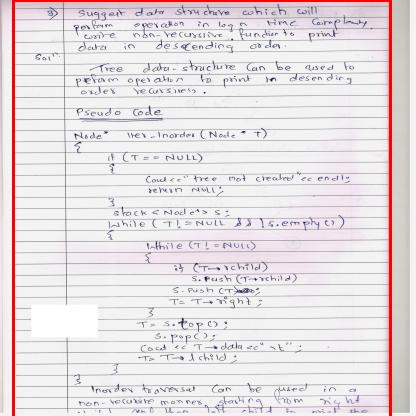 3) Suggest data structure which will
perform operation in log n time complexity
write non-recursive function to print
data in descending order.
Solⁿ.
Tree data-structure can be used to
peform operation to print in desending
order recursivess.
Pseudo Code
Node* Iter-Inorder (Node* T)
{
if (T == NULL)
{
Cout<<"tree not created"<< endl;
return NULL;
}
stack <Node*> s;
While (T!=NULL && !s.empty())
{
While (T!=NULL)
{
if (T→rchild)
s.push (T→rchild)
s.push (T);
T= T→right;
}
T= s.top();
s.pop();
Cout << T→data <<"\t";
T= T→lchild;
}
}
Inorder traversal can be used in a
non-recursive manner, starting from right
child and then left child to print the